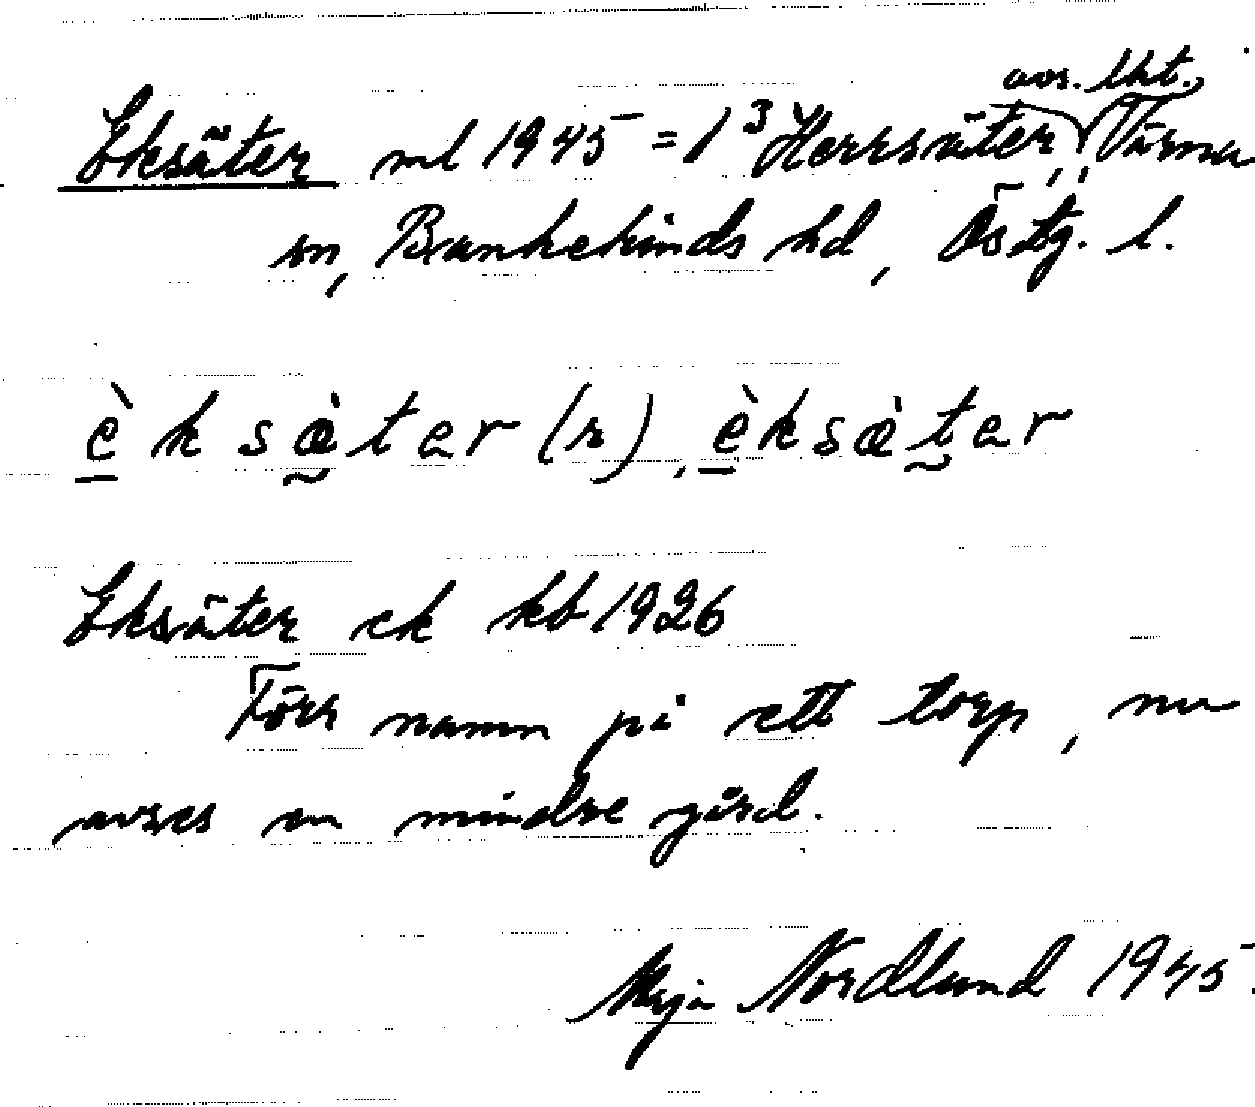 avs. lht.
Eksäter ml 1945 = 1³ Herrsäter, Värna
sn, Bankekinds hd, Östg. l.
è k s æ̀ t e r (r), èksæ̀ter
Eksäter ek kb 1926
Förr namn på ett torp, nu
avses en mindre gård.
Maja Nordlund 1945.